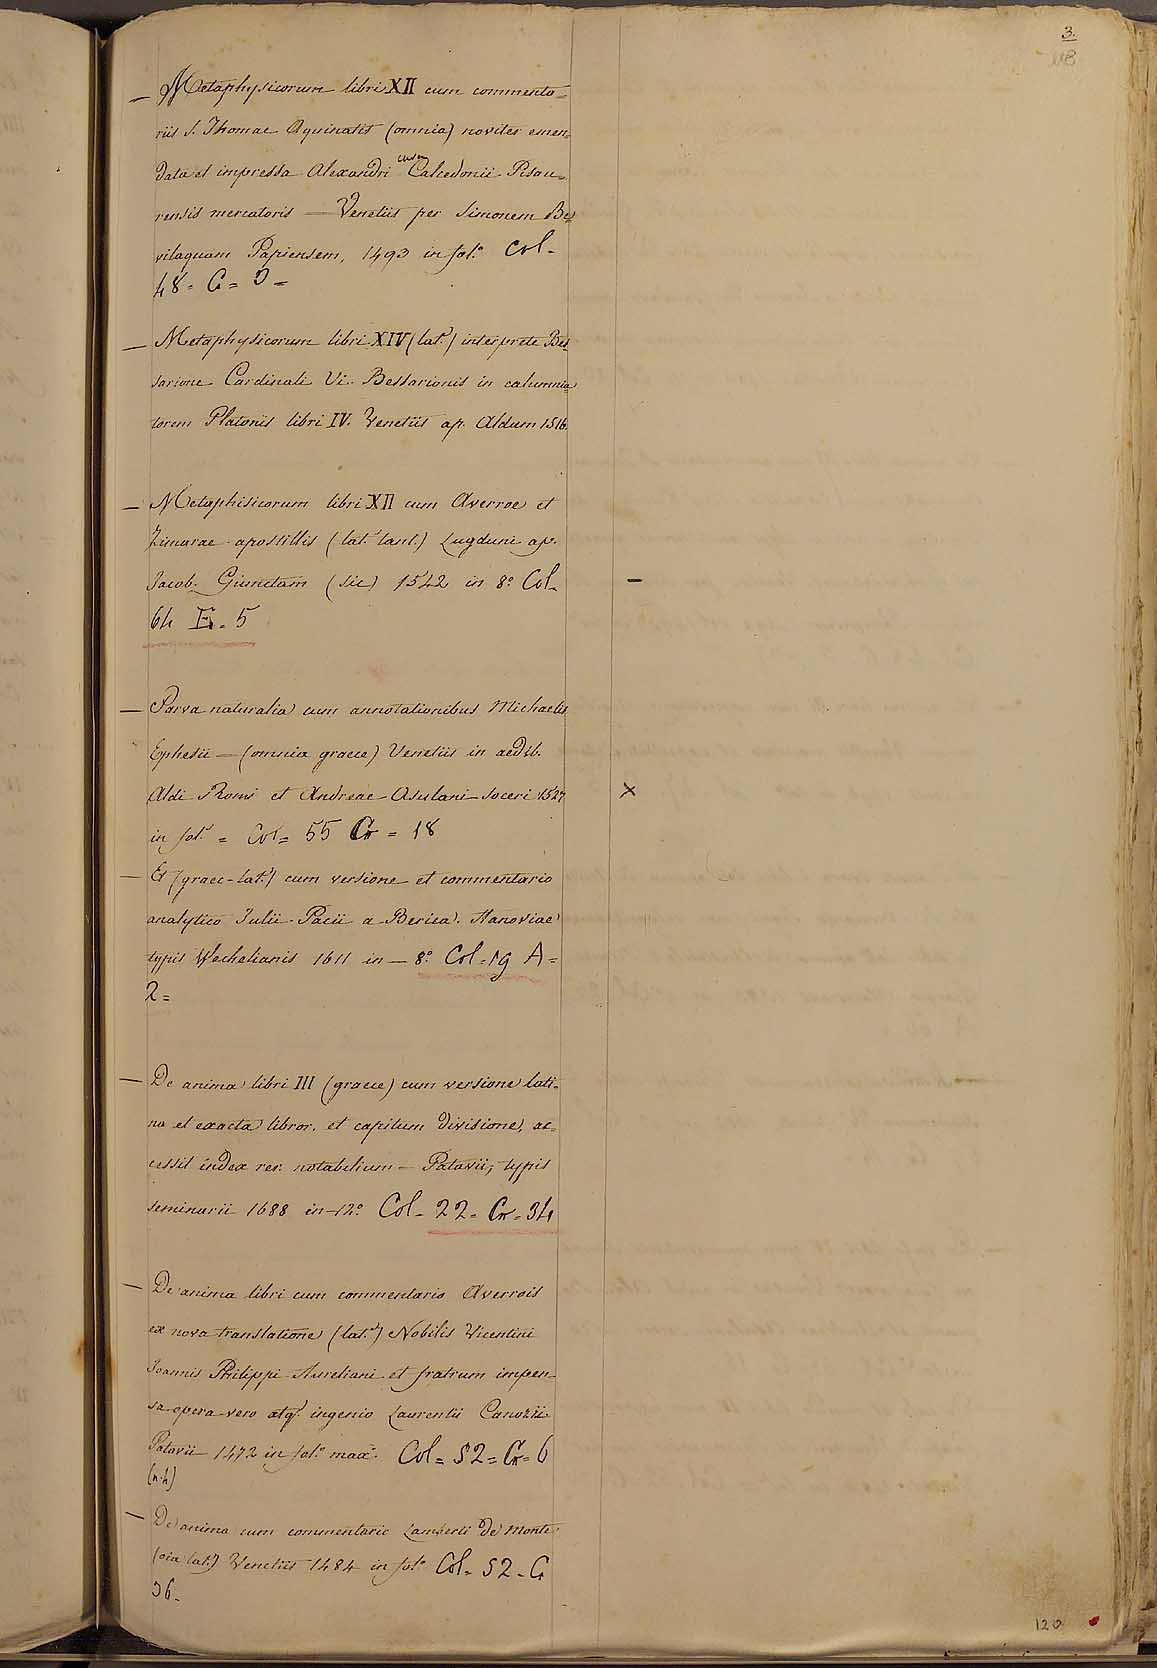 3.
118
— Metaphysicorum libri XII cum commenta=
riis S. Thomae Aquinatis (omnia) noviter emen=
data et impressa Alexandri cura Calcedonii Pisau=
rensis mercatoris — Venetiis per Simonem Be=
vilaquam Papiensem, 1493 in fol.° Col-
48 = G = 3 =
— Metaphysicorum libri XIV (lat.e) interprete Bes=
sarione Cardinali Vi. Bessarionis in calumnia=
torem Platonis libri IV. Venetiis ap. Aldum 1516.
— Metaphisicorum libri XII cum Averroe et
Zimarae apostillis (lat. tant.) Lugduni ap.
Jacob. Giunctam (sic) 1542 in 8.° Col- —
64 E = 5
— Parva naturalia cum annotationibus Michaelis
Ephesii — (omnia graece) Venetiis in aedib.
Aldi Rom. et Andreae Asulani Soceri 1527 ×
in fol.° = Col = 55 G = 18
— Et (graec-lat.e) cum versione et commentario
analytico Julii Pacii a Beriga. Hanoviae
typis Wechelianis 1611 in — 8.° Col = 19 A =
2 =
— De anima libri III (graece) cum versione lati=
na et exacta libror. et capitum divisione, ac=
cessit index rer. notabilium — Patavii, typis
seminarii 1688 in-12.° Col - 22 = G = 34
— De anima libri cum commentario Averrois
ex nova translatione (lat.e) Nobilis Vicentini
Joannis Philippi Aureliani et fratrum impen=
sa opera vero atq. ingenio Laurentii Canozii
Patavii 1472 in fol.° max.° Col = 52 = G = 6
(n. 4)
— De anima cum commentario Lamberti de Monte
(oia lat.) Venetiis 1484 in fol.° Col = 52 - G
36 -
120